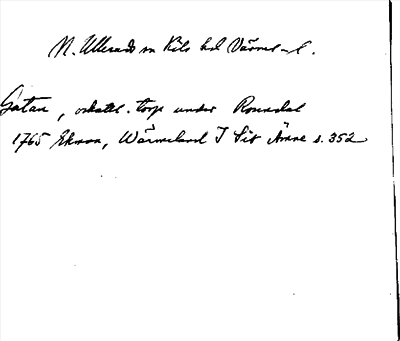 N. Ulleruds sn Kils hd Värml. l.
Gatan, oskattl. torp under Ronsdal
1765 Ekman, Wärmeland I Sit Ämne s. 352